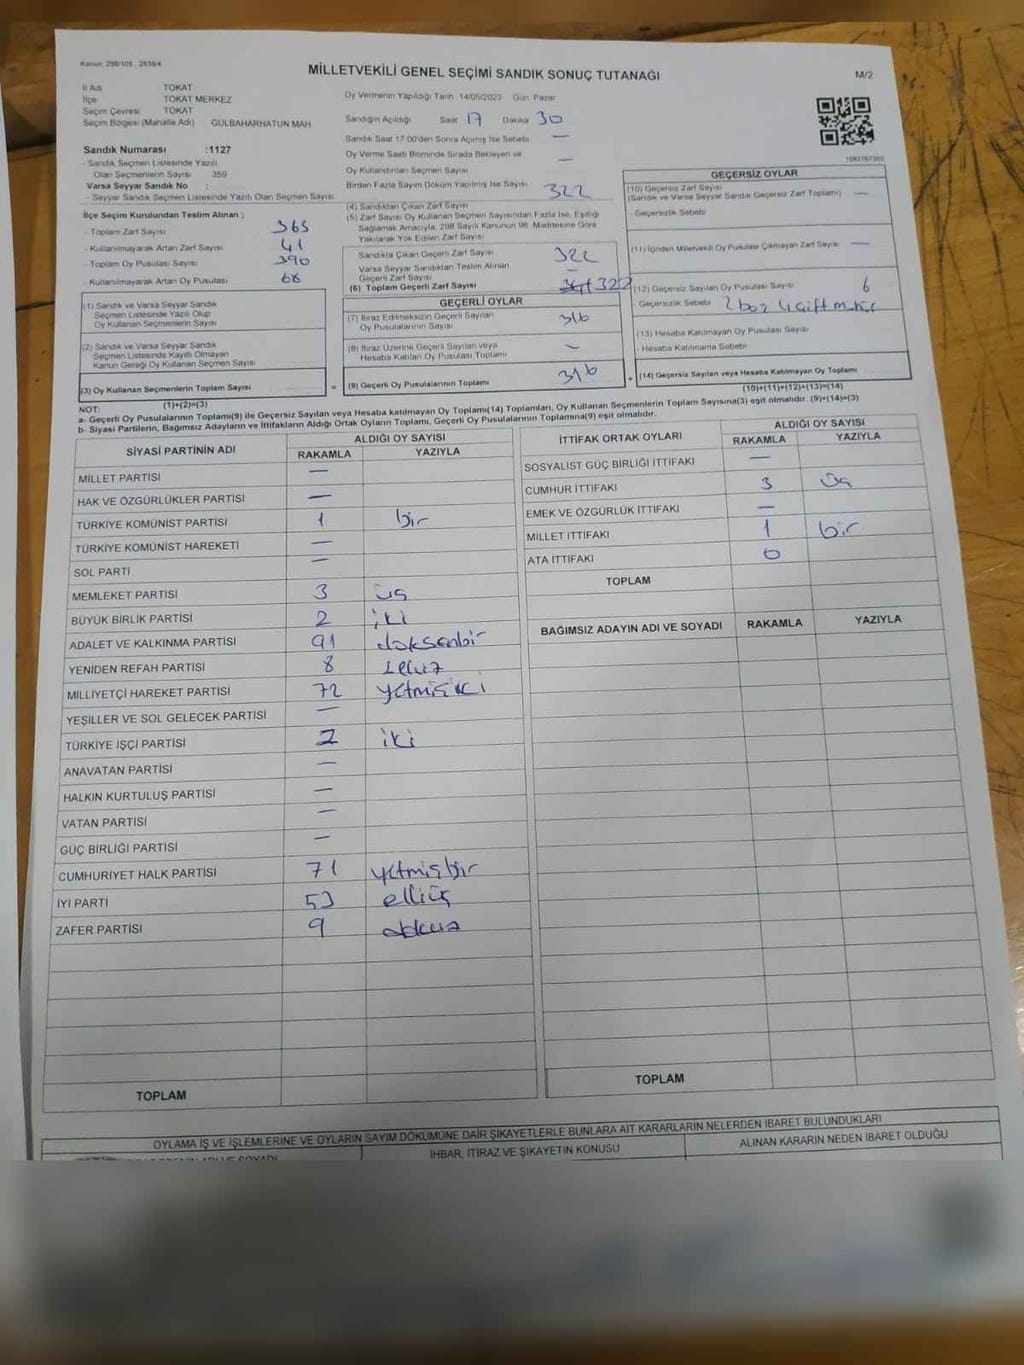 Kanun: 298/105 - 2839/4
MİLLETVEKİLİ GENEL SEÇİMİ SANDIK SONUÇ TUTANAĞI
M/2
İl Adı TOKAT
İlçe TOKAT MERKEZ
Seçim Çevresi TOKAT
Seçim Bölgesi (Mahalle Adı) GÜLBAHARHATUN MAH
Oy Vermenin Yapıldığı Tarih 14/05/2023 Gün: Pazar
Sandığın Açıldığı Saat 17 Dakika 30
Sandık Saat 17.00'den Sonra Açmış İse Sebebi —
Oy Verme Saati Bitiminde Sırada Bekleyen ve
Oy Kullandırılan Seçmen Sayısı —
Birden Fazla Sayım Döküm Yapılmış İse Sayısı
Sandık Numarası :1127
- Sandık Seçmen Listesinde Yazılı
Olan Seçmenlerin Sayısı 359
Varsa Seyyar Sandık No :
- Seyyar Sandık Seçmen Listesinde Yazılı Olan Seçmen Sayısı
İlçe Seçim Kurulundan Teslim Alınan ;
- Toplam Zarf Sayısı 365
- Kullanılmayarak Artan Zarf Sayısı 41
- Toplam Oy Pusulası Sayısı 390
- Kullanılmayarak Artan Oy Pusulası 68
(4) Sandıktan Çıkan Zarf Sayısı 322
(5) Zarf Sayısı Oy Kullanan Seçmen Sayısından Fazla İse, Eşitliği
Sağlamak Amacıyla, 298 Sayılı Kanunun 98. Maddesine Göre
Yakılarak Yok Edilen Zarf Sayısı
Sandıkta Çıkan Geçerli Zarf Sayısı 322
Varsa Seyyar Sandıktan Teslim Alınan
Geçerli Zarf Sayısı —
(6) Toplam Geçerli Zarf Sayısı 322
GEÇERLİ OYLAR
(7) İtiraz Edilmeksizin Geçerli Sayılan
Oy Pusulalarının Sayısı 316
(8) İtiraz Üzerine Geçerli Sayılan veya
Hesaba Katılan Oy Pusulası Toplamı —
(9) Geçerli Oy Pusulalarının Toplamı 316
1083767300
GEÇERSİZ OYLAR
(10) Geçersiz Zarf Sayısı
(Sandık ve Varsa Seyyar Sandık Geçersiz Zarf Toplamı) —
- Geçersizlik Sebebi
(11) İçinden Milletvekili Oy Pusulası Çıkmayan Zarf Sayısı —
(12) Geçersiz Sayılan Oy Pusulası Sayısı 6
- Geçersizlik Sebebi 2 boş 4 çift mühür
(13) Hesaba Katılmayan Oy Pusulası Sayısı
- Hesaba Katılmama Sebebi
(14) Geçersiz Sayılan veya Hesaba Katılmayan Oy Toplamı
(10)+(11)+(12)+(13)=(14)
(1) Sandık ve Varsa Seyyar Sandık
Seçmen Listesinde Yazılı Olup
Oy Kullanan Seçmenlerin Sayısı
(2) Sandık ve Varsa Seyyar Sandık
Seçmen Listesinde Kayıtlı Olmayan
Kanun Gereği Oy Kullanan Seçmen Sayısı
(3) Oy Kullanan Seçmenlerin Toplam Sayısı =
(1)+(2)=(3)
NOT:
a- Geçerli Oy Pusulalarının Toplamı(9) ile Geçersiz Sayılan veya Hesaba Katılmayan Oy Toplamı(14) Toplamları, Oy Kullanan Seçmenlerin Toplam Sayısına(3) eşit olmalıdır. (9)+(14)=(3)
b- Siyasi Partilerin, Bağımsız Adayların ve İttifakların Aldığı Ortak Oyların Toplamı, Geçerli Oy Pusulalarının Toplamına(9) eşit olmalıdır.
SİYASİ PARTİNİN ADI
ALDIĞI OY SAYISI
RAKAMLA YAZIYLA
MİLLET PARTİSİ —
HAK VE ÖZGÜRLÜKLER PARTİSİ —
TÜRKİYE KOMÜNİST PARTİSİ 1 bir
TÜRKİYE KOMÜNİST HAREKETİ —
SOL PARTİ —
MEMLEKET PARTİSİ 3 üç
BÜYÜK BİRLİK PARTİSİ 2 iki
ADALET VE KALKINMA PARTİSİ 91 doksanbir
YENİDEN REFAH PARTİSİ 8 sekiz
MİLLİYETÇİ HAREKET PARTİSİ 72 yetmişiki
YEŞİLLER VE SOL GELECEK PARTİSİ —
TÜRKİYE İŞÇİ PARTİSİ 2 iki
ANAVATAN PARTİSİ —
HALKIN KURTULUŞ PARTİSİ —
VATAN PARTİSİ —
GÜÇ BİRLİĞİ PARTİSİ —
CUMHURİYET HALK PARTİSİ 71 yetmişbir
İYİ PARTİ 53 elliüç
ZAFER PARTİSİ 9 dokuz
TOPLAM
İTTİFAK ORTAK OYLARI
ALDIĞI OY SAYISI
RAKAMLA YAZIYLA
SOSYALİST GÜÇ BİRLİĞİ İTTİFAKI —
CUMHUR İTTİFAKI 3 üç
EMEK VE ÖZGÜRLÜK İTTİFAKI —
MİLLET İTTİFAKI 1 bir
ATA İTTİFAKI 0
TOPLAM
BAĞIMSIZ ADAYIN ADI VE SOYADI RAKAMLA YAZIYLA
TOPLAM
OYLAMA İŞ VE İŞLEMLERİNE VE OYLARIN SAYIM DÖKÜMÜNE DAİR ŞİKAYETLERLE BUNLARA AİT KARARLARIN NELERDEN İBARET BULUNDUKLARI
İHBAR, İTİRAZ VE ŞİKAYETİN KONUSU
ALINAN KARARIN NEDEN İBARET OLDUĞU